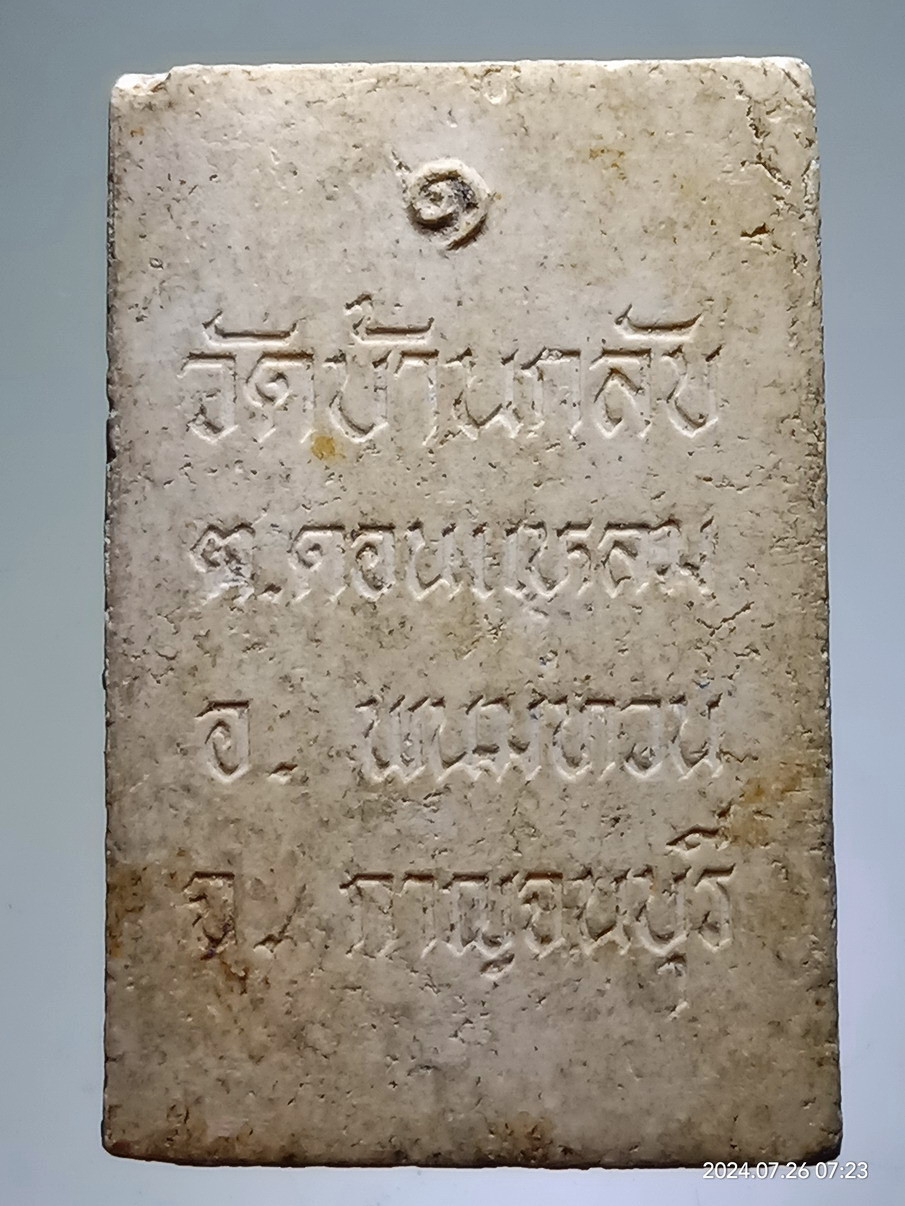 ๑
วัดบ้านกลับ
ต.
อ. พนมทวน
จ. กาญจนบุรี
2024.07.26 07:23